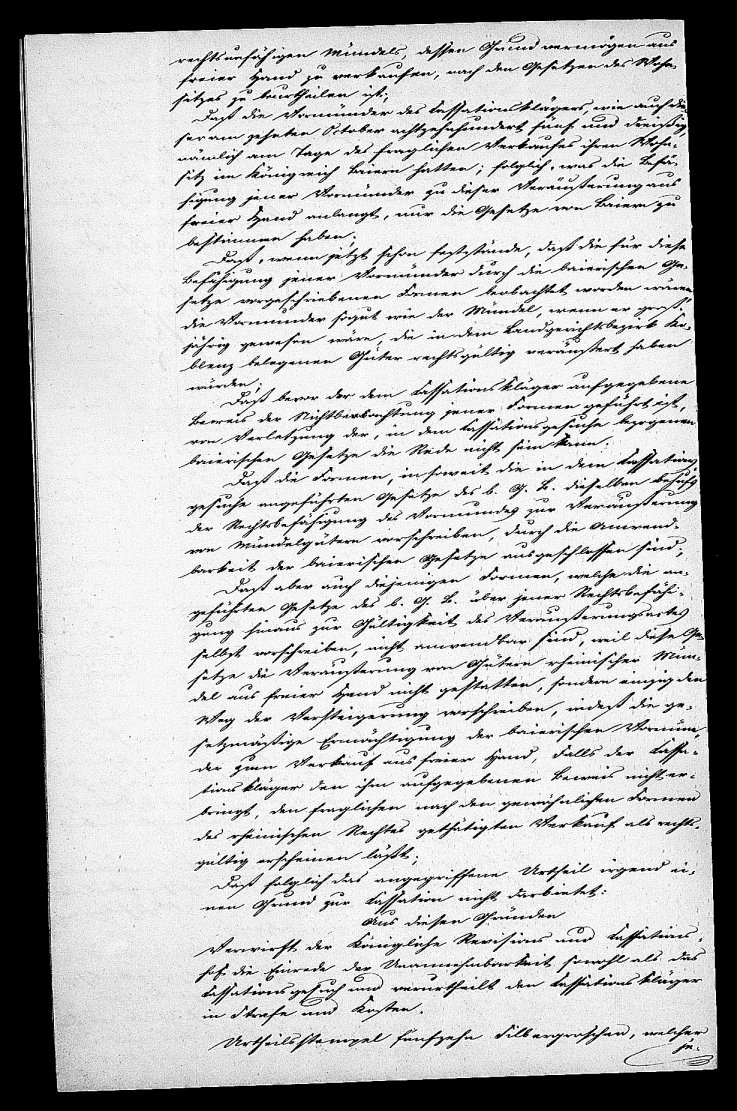 rechtsunfähigen Mündels, dessen Grundvermögen aus
freier Hand zu verkaufen, nach den Gesetzen des Wohn-
sitzes zu beurtheilen ist;
Daß die Vormünder des Cassationsklägers, wie auch die-
ser am zehnten October achtzehnhundert fünf und dreißig,
nämlich am Tage des fraglichen Verkaufes ihren Wohn-
sitz im Königreich Baiern hatten; folglich, was die Befä-
higung jener Vormünder zu dieser Veräußerung aus
freier Hand anlangt, nur die Gesetze von Baiern zu
bestimmen haben;
Daß, wenn jetzt schon feststände, daß die für diese
Befähigung jener Vormünder durch die baierischen Ge-
setze vorgeschriebenen Formen beobachtet worden wären,
die Vormünder sogut wie der Mündel, wenn er groß-
jährig gewesen wäre, die in dem Landgerichtsbezirk Ko-
blenz belegenen Güter rechtsgültig veräußert haben
würden;
Daß bevor der dem Cassationskläger aufgegebene
Beweis der Nichtbeobachtung jener Formen geführt ist,
von Verletzung der, in dem Cassationsgesuche bezogenen
baierischen Gesetze die Rede nicht sein kann.
Daß die Formen, in soweit die in dem Cassations-
gesuche angeführten Gesetze des b. G. B. dieselben behufs
der Rechtsbefähigung des Vormundes zur Veräußerung
von Mündelgütern vorschreiben, durch die Anwend-
barkeit der baierischen Gesetze ausgeschlossen sind;
Daß aber auch diejenigen Formen, welche die an-
geführten Gesetze des b. G. B. über jener Rechtsbefähi-
gung hinaus zur Gültigkeit des Veräußerungsactes
selbst vorschreiben, nicht anwendbar sind, weil diese Ge-
setze die Veräußerung von Gütern rheinischer Mün-
del aus freier Hand nicht gestatten, sondern einzig den
Weg der Versteigerung vorschreiben, indeß die ge-
setzmäßige Ermächtigung der baierischen Vormün-
der zum Verkauf aus freier Hand, Falls der Cassa-
tionskläger den ihm aufgegebenen Beweis nicht er-
bringt, den fraglichen nach den gewöhnlichen Formen
des rheinischen Rechtes gethätigten Verkauf als rechts-
gültig erscheinen läßt;
Daß folglich das angegriffene Urtheil irgend ei-
nen Grund zur Cassation nicht darbietet:
Aus diesen Gründen
Verwirft der Königliche Revisions und Cassations-
hof die Einrede der Unannehmbarkeit sowohl als das
Cassationsgesuch und verurtheilt den Cassationskläger
in Strafe und Kosten.
Urtheilsstempel fünfzehn Silbergroschen, welcher
je-